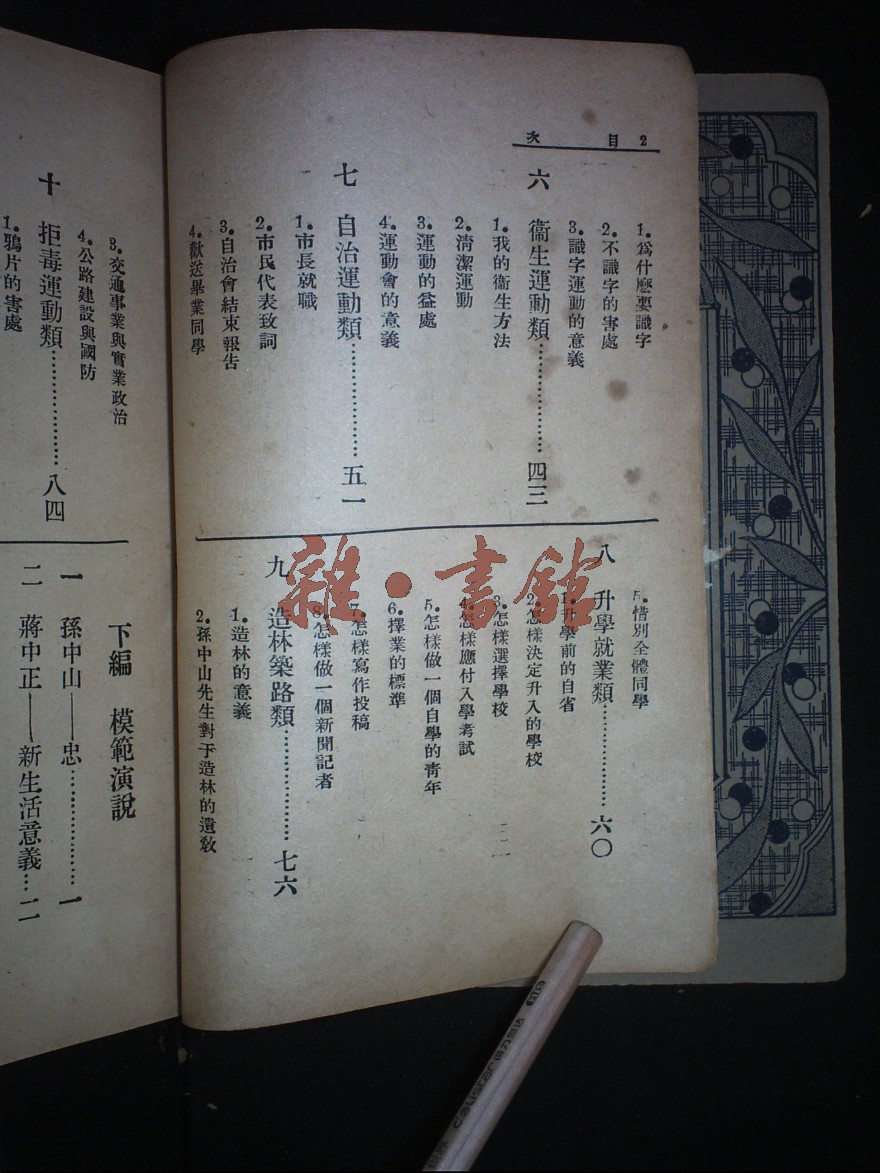 目次 2
1.為什麼要識字
2.不識字的害處
3.識字運動的意義
六 衞生運動類……四三
1.我的衞生方法
2.清潔運動
3.運動的益處
4.運動會的意義
七 自治運動類……五一
1.市長就職
2.市民代表致詞
3.自治會結束報告
4.歡送畢業同學
5.惜別全體同學
八 升學就業類……六〇
1.升學前的自省
2.怎樣決定升入的學校
3.怎樣選擇學校
4.怎樣應付入學考試
5.怎樣做一個自學的靑年
6.擇業的標準
7.怎樣寫作投稿
8.怎樣做一個新聞記者
九 造林築路類……七六
1.造林的意義
2.孫中山先生對于造林的遺敎
3.交通事業與實業政治
4.公路建設與國防
十 拒毒運動類……八四
1.鴉片的害處
下編 模範演說
一 孫中山——忠……一
二 蔣中正——新生活意義…二
雜·書館